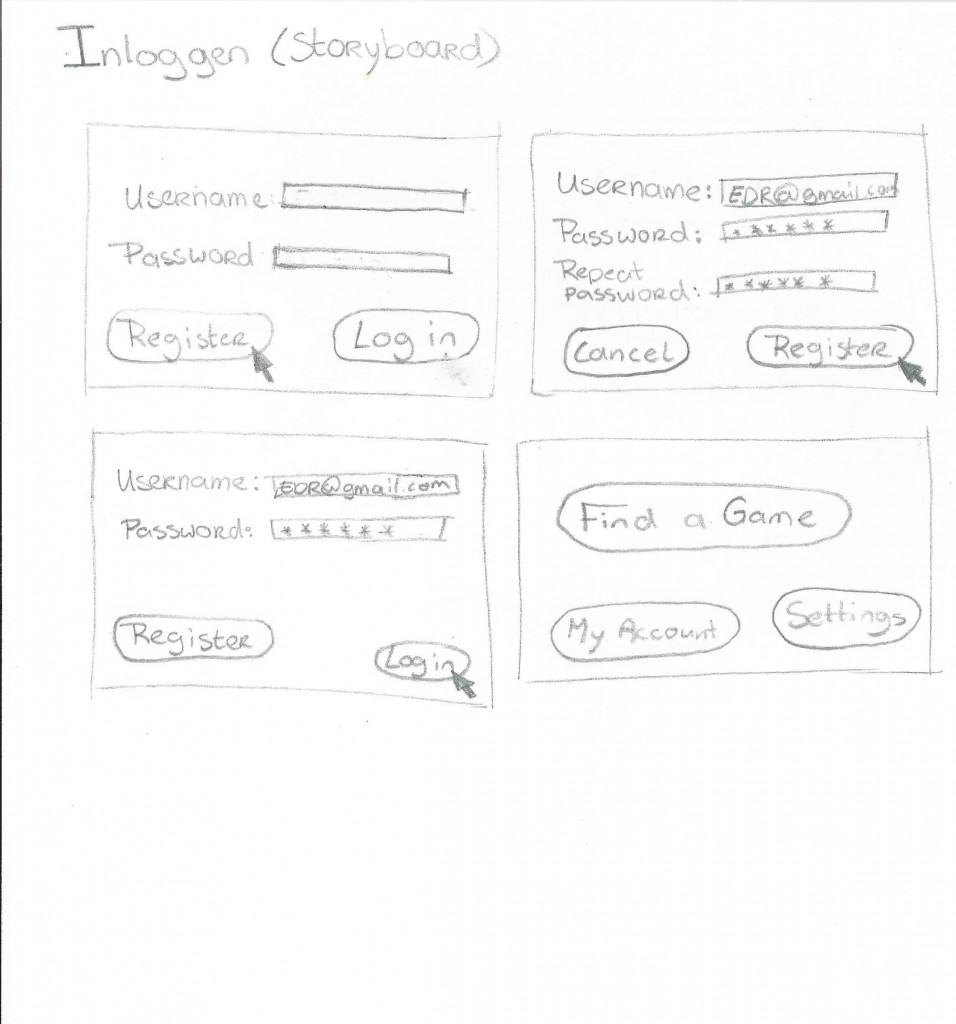 Inloggen (Storyboard)
Username:
Password
Register
Log in
Username: EDR@gmail.com
Password: ******
Repeat
password: ******
Cancel
Register
Username: EDR@gmail.com
Password: ******
Register
Log in
Find a Game
My Account
Settings